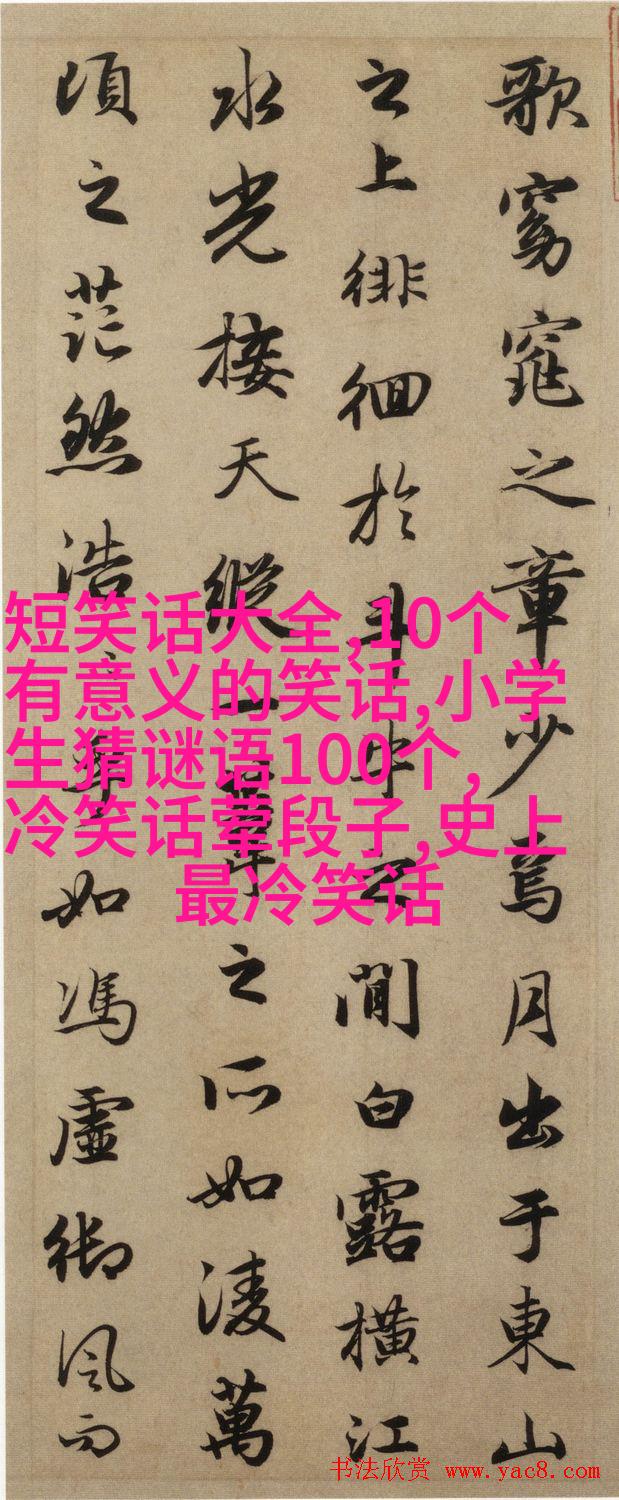 歌窈窕之章少焉月出于東山
之上徘徊於斗牛之間白露橫江
水光接天縱一葦之所如淩萬
頃之茫然浩〻乎如馮虛御風而
短笑话大全,10个
有意义的笑话,小学
生猜谜语100个,
冷笑话荤段子,史上
最冷笑话
书法欣赏 www.yac8.com